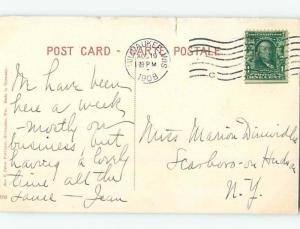 POST CARD - CARTE POSTALE
MILWAUKEE, WIS.
9 PM
1908
C
We have been
here a week
- mostly on
business, but
having a lovely
time all the
same - Jean
Miss Marion Dinwiddie
Scarboro-on-Hudson
N.Y.